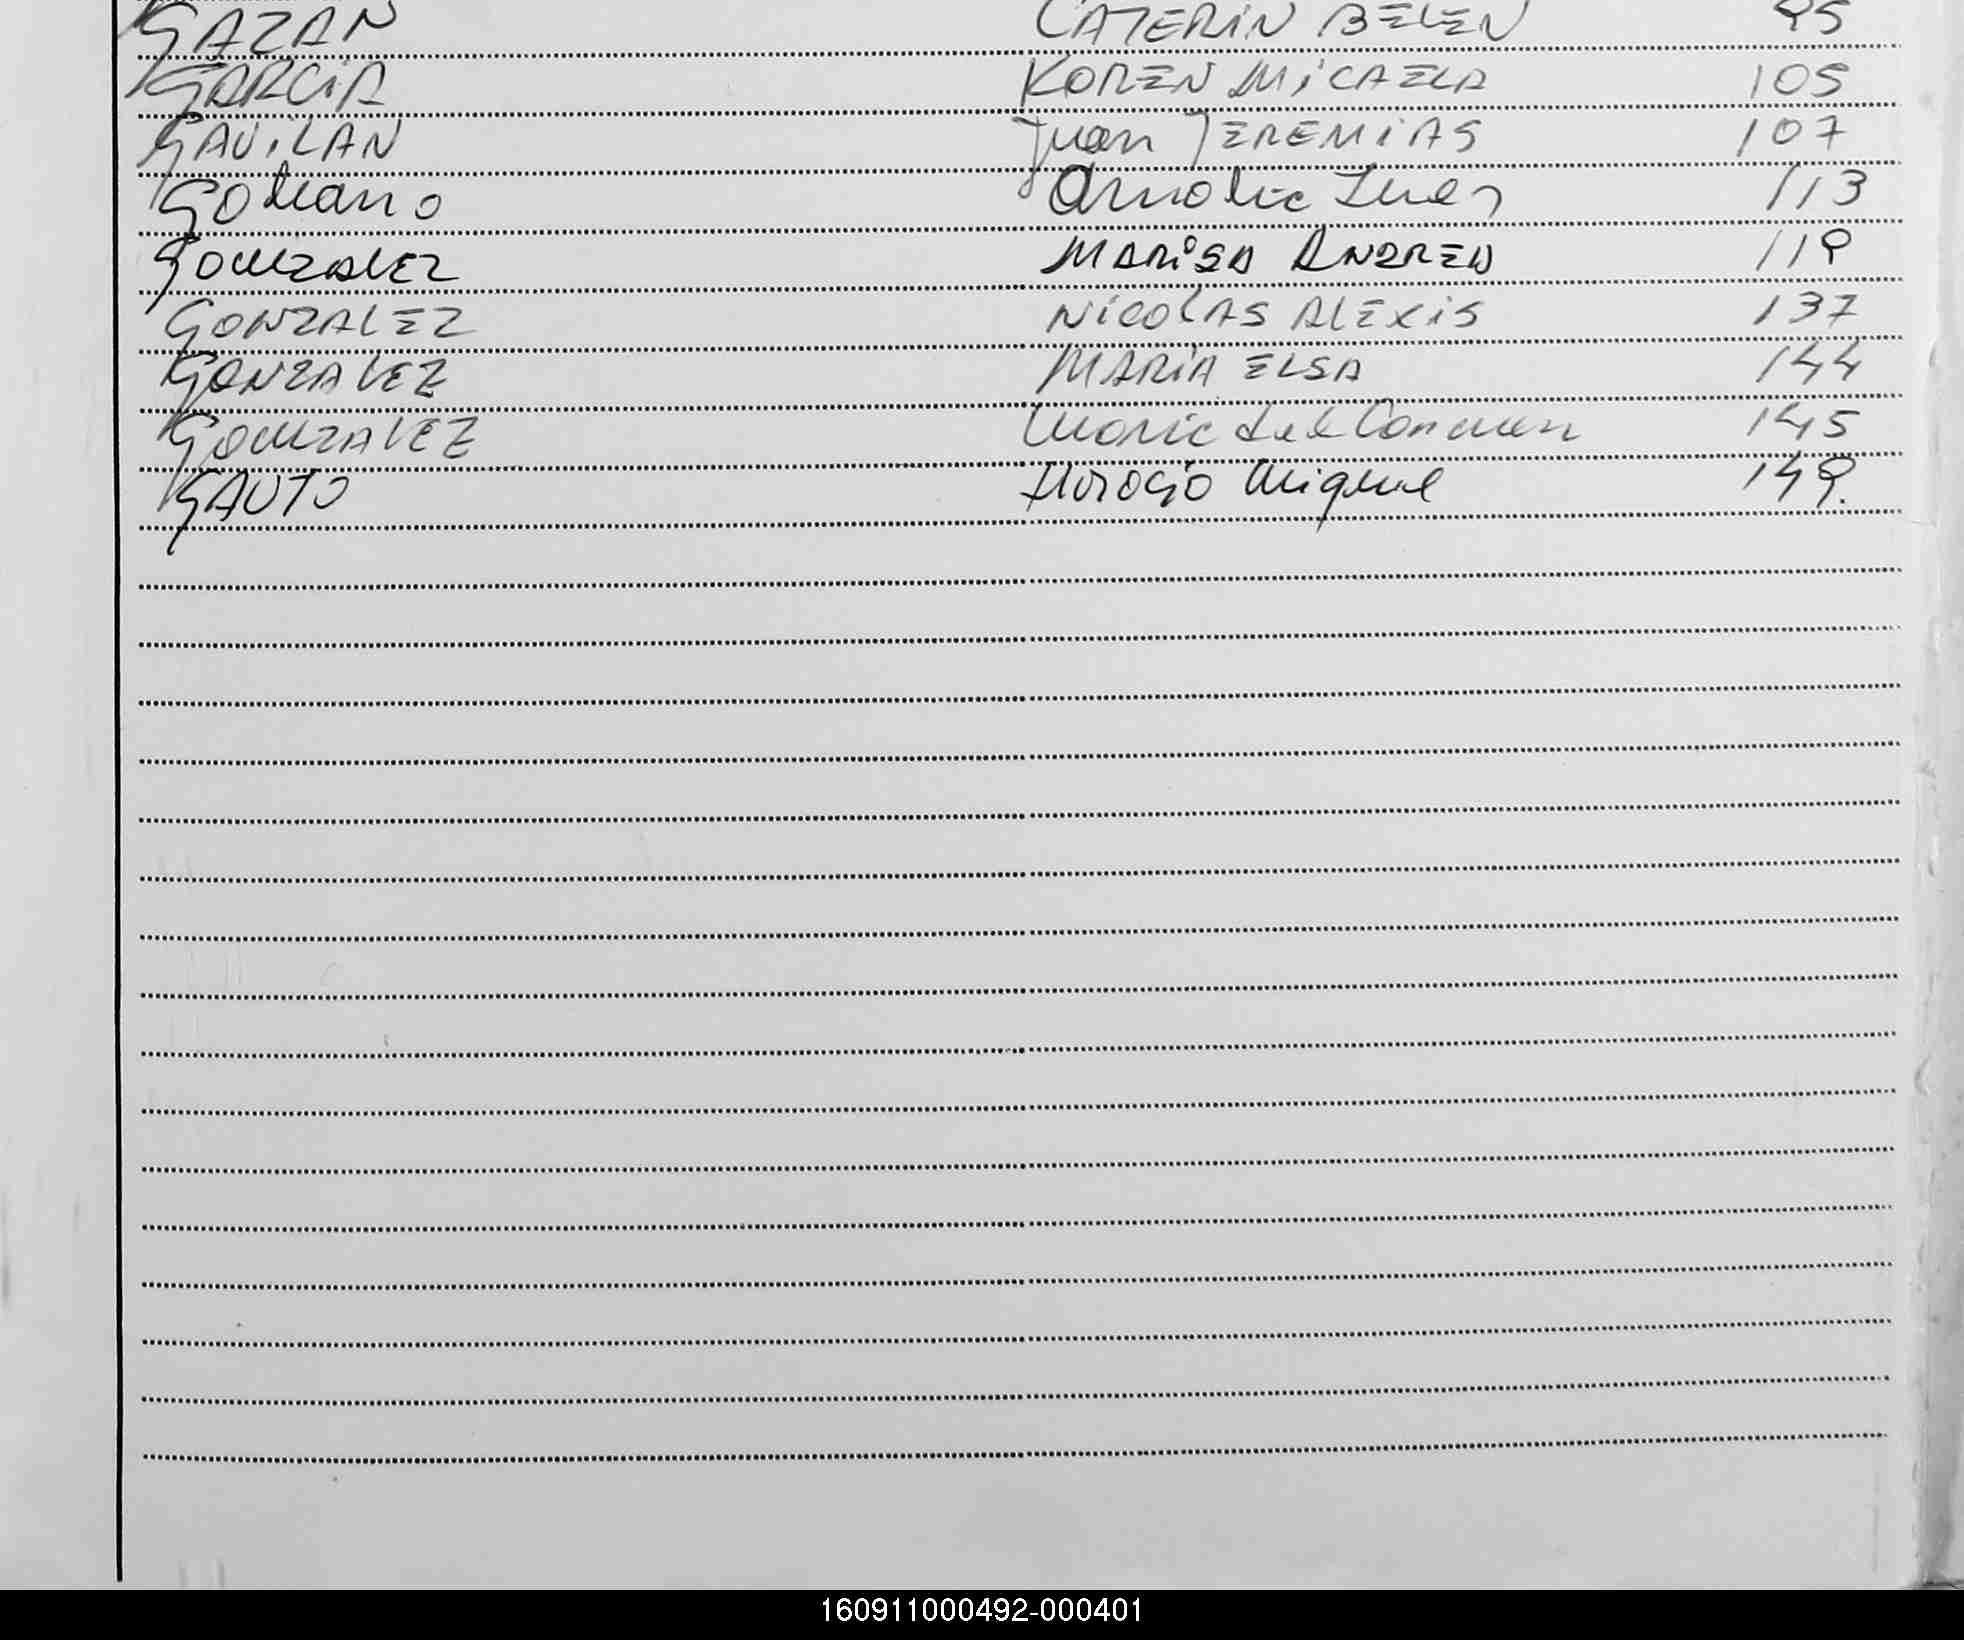 GAZAN CATERIN BELEN 95
GARCIA KOREN MICAELA 105
GAVILAN Juan JEREMIAS 107
113
GONZALEZ MARISA ANDREA 119
GONZALEZ NICOLAS ALEXIS 137
GONZALEZ MARIA ELSA 144
GONZALEZ Maria del Carmen 145
GAUTO Horacio Miguel 149.
160911000492-000401